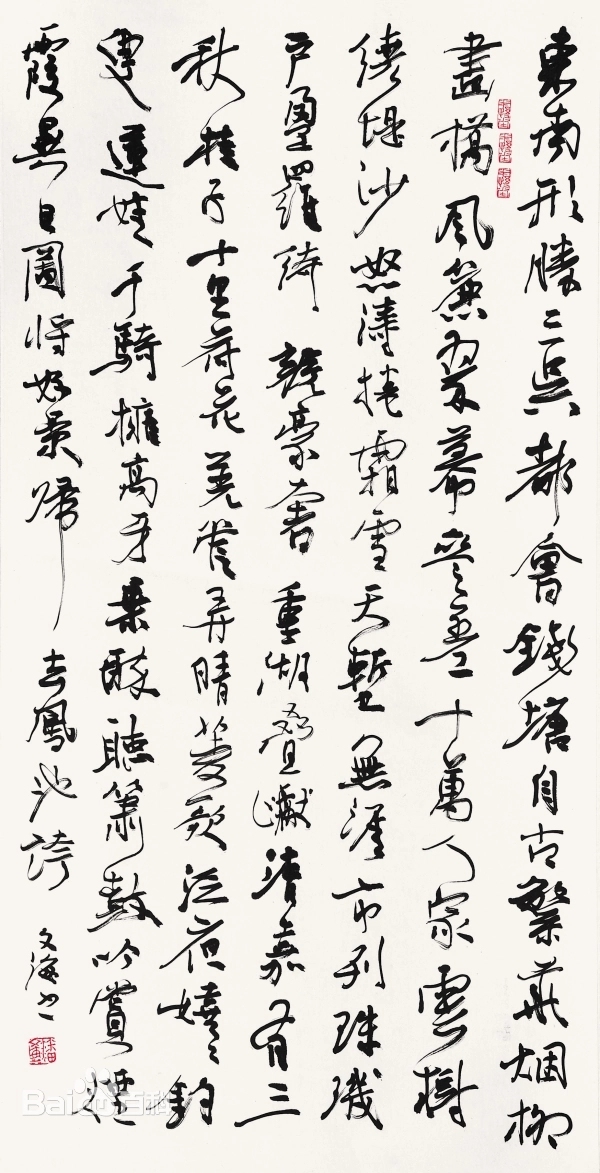 東南形勝三吳都會錢塘自古繁華烟柳
畫橋風簾翠幕參差十萬人家雲樹
繞堤沙怒濤捲霜雪天塹無涯市列珠璣
户盈羅綺競豪奢重湖疊巘清嘉有三
秋桂子十里荷花羌管弄晴菱歌泛夜嬉々釣
叟蓮娃千騎擁高牙乘醉聽簫鼓吟賞煙
霞異日圖將好景歸去鳳池誇
文海書
Baidu百科